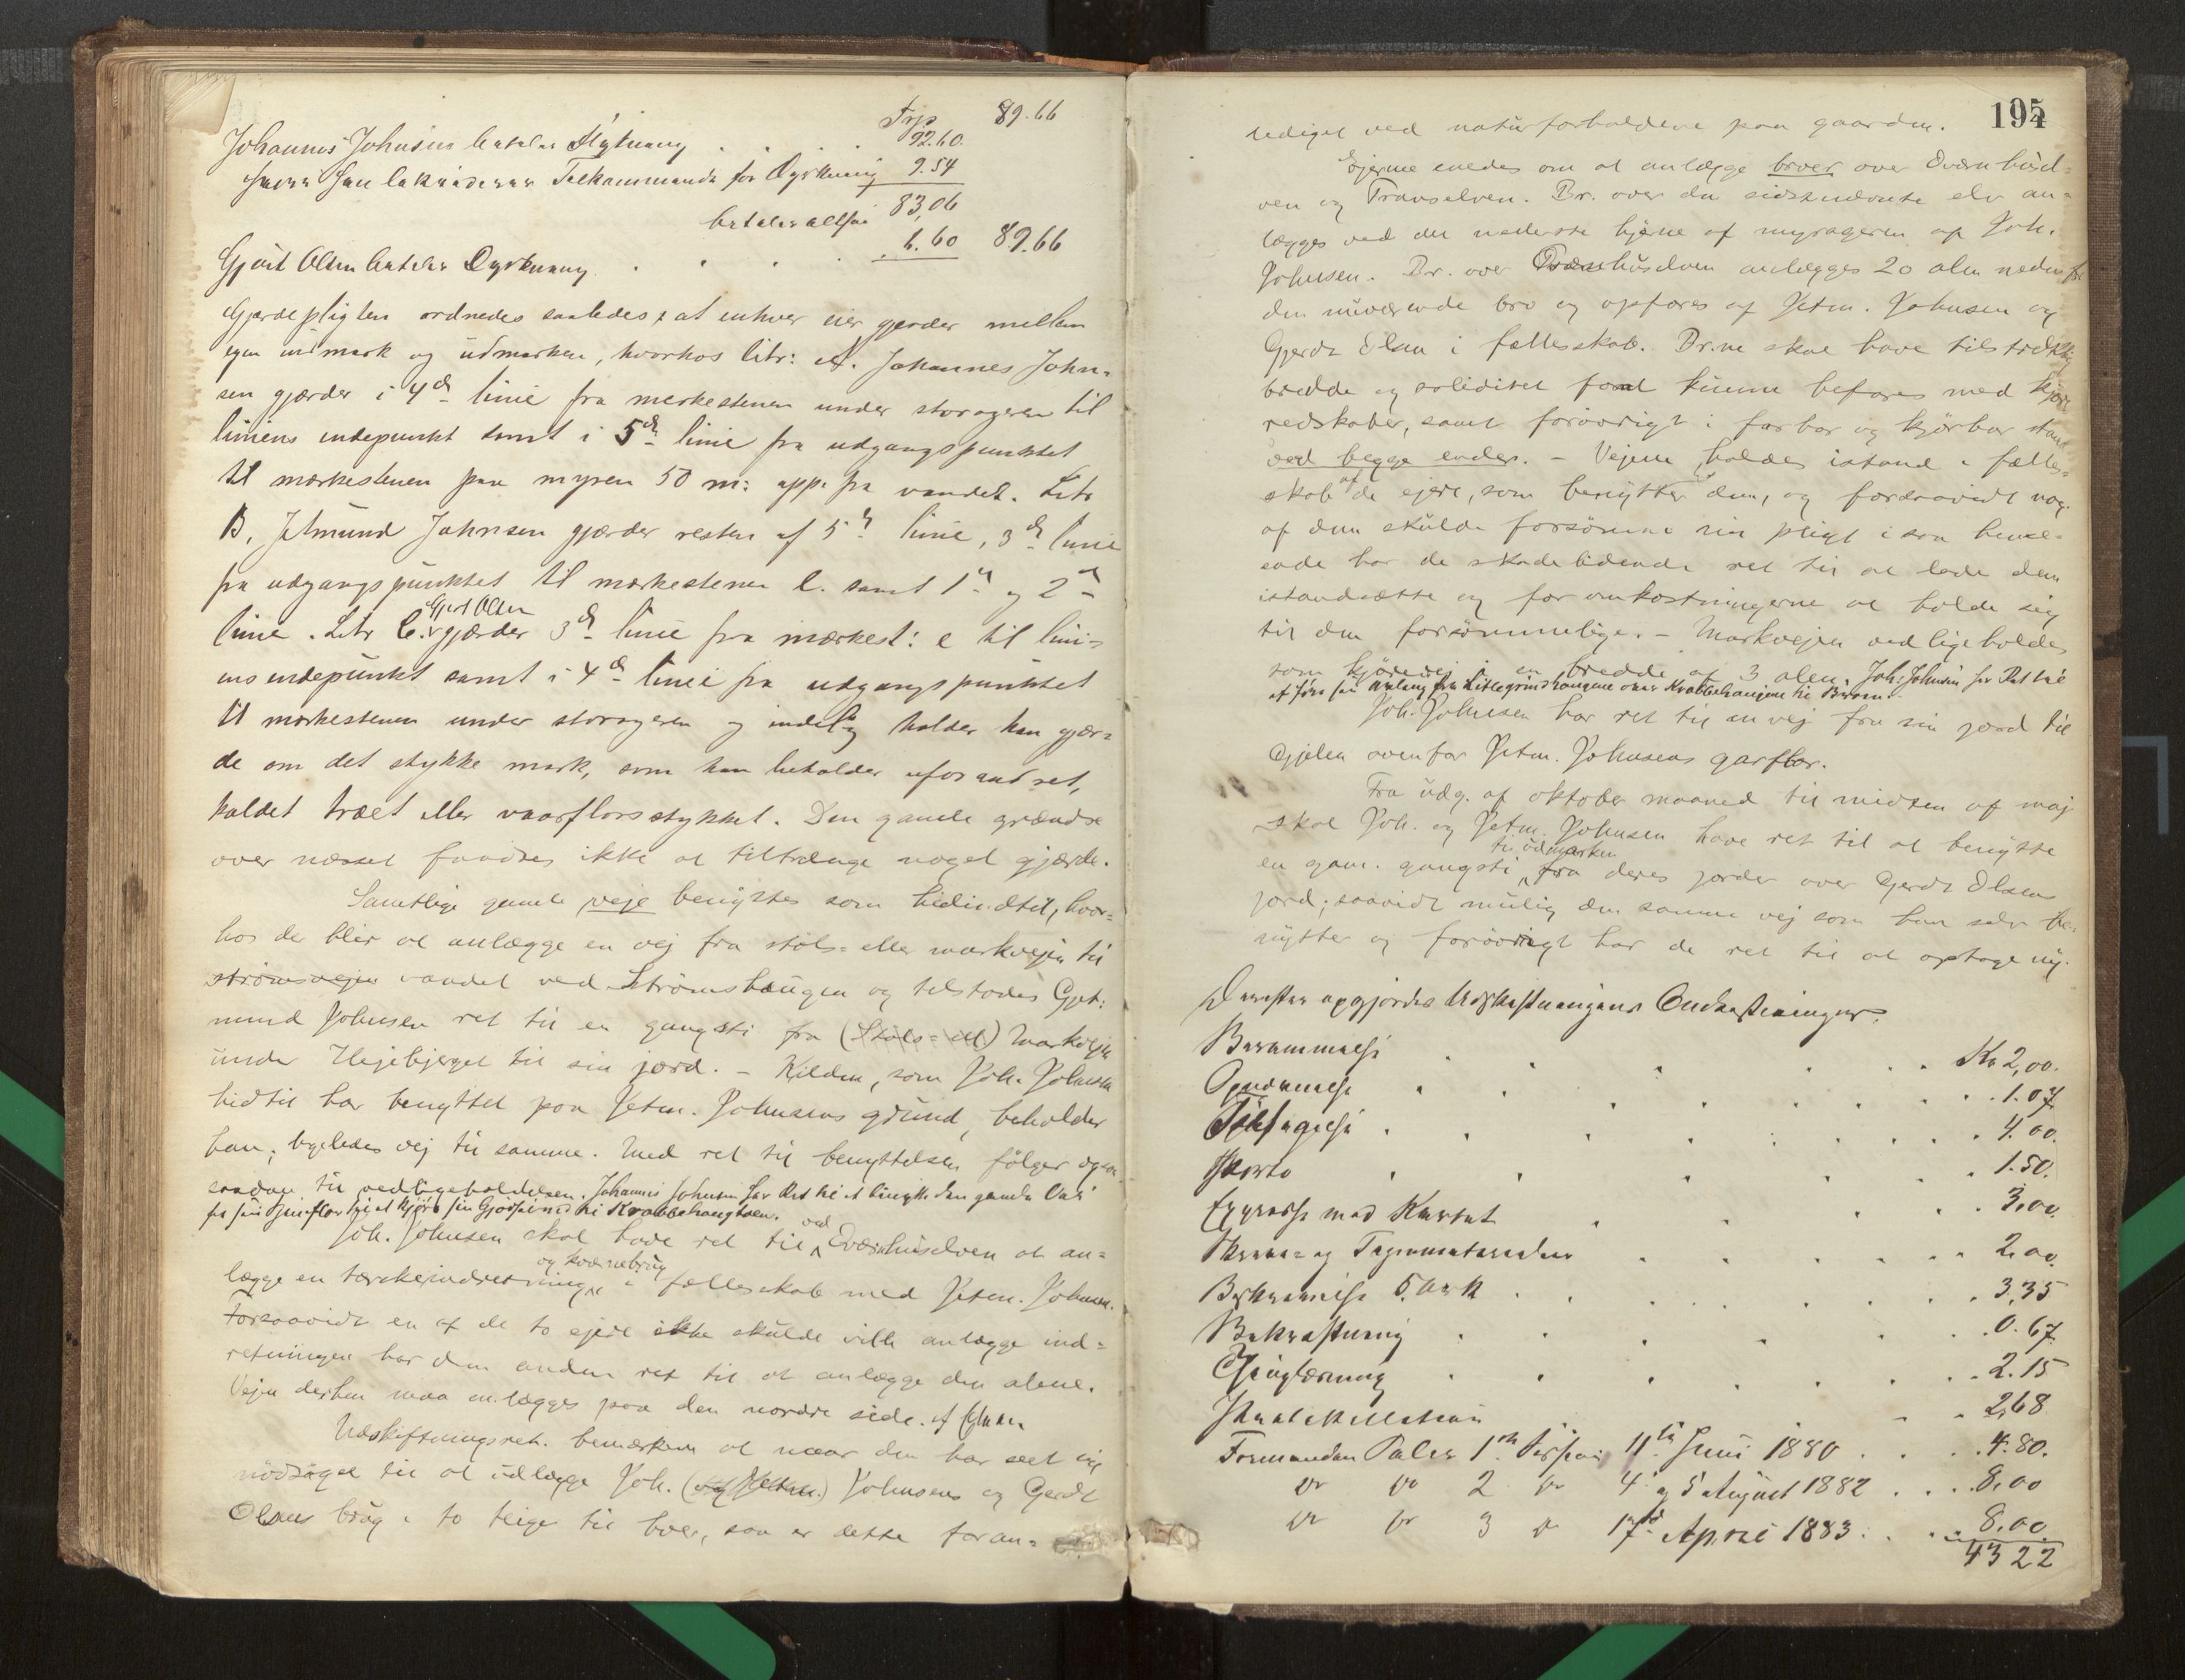 Trp 89.66
Johannes Johnsen betaler Flytning . . . 92.60.
faar han Tilkommende for Dyrkning 9.54
betaler altsaa 83,06
Gjert Olsen betaler Dyrkning . . . . 6.60 89.66
Gjærdepligten ordnedes saaledes, at enhver eier gjerder mellem
egen indmark og udmarken, hvorhos litr: A. Johannes John-
sen gjærder i 4de linie fra merkestenen under storageren til
liniens endepunkt samt i 5de linie fra udgangspunktet
til mærkestenen paa myren 50 m: opp. fra vandet. Litr
B, Jetmund Johnsen gjærder resten af 5te linie, 3de linie
fra udgangspunktet til mærkestenen e. samt 1ste og 2den
linie. Litr C. Gjert Olsen gjærder 3de linie fra mærkest: e til lini-
ens endepunkt samt i 4de linie fra udgangspunktet
til mærkestenen under storageren og endelig holder han gjær-
de om det stykke mark, som han beholder uforandret,
kaldet træet eller vaarflorsstykket. Den gamle grændse
over næsset fandtes ikke at tiltrænge noget gjærde.
Samtlige gamle veje benyttes som hidindtil, hvor-
hos der blir at anlægge en vej fra støls- eller markvejen til
strømsvejen vandet ved Strømshaugen og tilstodes Gjet:
mund Johnsen ret til en gangsti fra (Støls- ell.) Markvejen
under Hejebjerget til sin jord. - Kilden, som Joh. Johnsen
hidtil har benyttet paa Jetm. Johnsens grund, beholder
han; ligeledes vej til samme. Med ret til benyttelsen følger ogsaa
saadan til vedligeholdelsen. Johannes Johnsen har Ret til at benytte den gamle Vei
fra sin flor til at kjøre sin Gjødsel ned til Krabbehaugteen.
Joh. Johnsen skal have ret til ved Kværnhuselven at an-
lægge en tærskeindretning og kværnebrug i fællesskab med Jetm. Johnsen.
Forsaavidt en af de to ejere ikke skulde ville anlægge ind-
retningen har den anden ret til at anlægge den alene.
Vejen derhen maa anlægges paa den nordre side. af Elven
Udskiftningsret. bemærkede at naar den har seet sig
nødsaget til at udlægge Joh. (og Jetm.) Johnsens og Gerdt
Olsens brug i to teige til hver, saa er dette foran-
195
lediget ved naturforholdene paa gaarden.
Ejerne enedes om at anlægge broer over Kværnhusel-
ven og Transelven. Br. over den sidstnævnte elv an-
lægges ved det nederste hjørne af myrageren af Joh.
Johnsen. Br. over Kværnhuselven anlægges 20 alen nedenfor
den nuværende bro og opføres af Jetm. Johnsen og
Gjerdt Olsen i fællesskab. Br.ne skal have tilstrækkelig
bredde og soliditet for at kunne befares med kjøre
redskaber, samt forøvrigt i farbar og kjørbar stand
ved begge ender. - Vejene holdes istand i fælles-
skab af de ejere, som benytter dem, og forsaavidt nog.
af dem skulde forsømme sin pligt i saa hense-
ende har de skadelidende ret til at lade dem
istandsætte og for omkostningerne at holde sig
til den forsømmelige. - Markvejen vedligeholdes
som kjørevej i en bredde af 3 alen. Joh: Johnsen har Ret til
at føre sin fra Litlegrindhaugene over Krabbehaugene til Broen.
Joh. Johnsen har ret til en vej fra sin jord til
Gjelen ovenfor Jetm. Johnsens garflor.
Fra udg. af oktober maaned til midten af maj
skal Joh. og Jetm. Johnsen have ret til at benytte
en gam. gangsti til udmarken fra deres jorder over Gjerdt Olsens
jord; saavidt mulig den samme vej som han selv be-
nytter og forøvrigt har de ret til at optage ny.
Derefter opgjordes Udskiftningens Omkostninger.
Berammelse . . . . . Kr 2,00.
Opnævnelse . . . . . 1.07
Tilsigelse . . . . . 4.00.
Porto . . . . . 1.50.
Expresse med Kartet . . . . 3,00.
Skrive- og Tegnematerialier . . . . 2.00.
Beskrivelse 5. Ark . . . . 3,35
Bekræftning . . . . . 0.67.
Thinglæsning . . . . . 2.15
. . 2,68
Formanden Palm 1ste Session 11te Juni 1880 . . . 4.80.
do do 2 do 4 og 5 August 1882 . . . 8,00
do do 3 do 17de April 1883. . . 8.00
4322